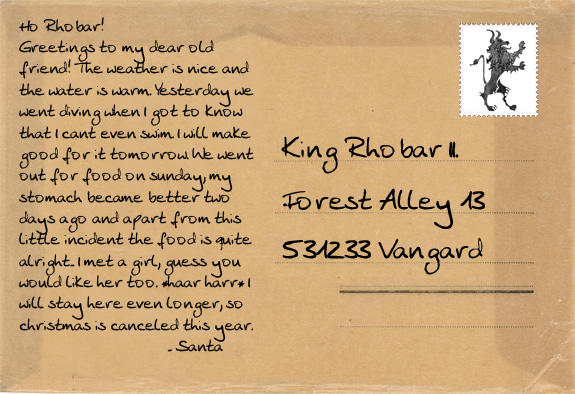 Ho Rhobar!
Greetings to my dear old
friend! The weather is nice and
the water is warm. Yesterday we
went diving when I got to know
that I cant even swim. I will make
good for it tomorrow. We went
out for food on sunday, my
stomach became better two
days ago and apart from this
little incident the food is quite
alright. I met a girl, guess you
would like her too. *haar harr* I
will stay here even longer, so
christmas is canceled this year.
- Santa
King Rhobar II.
Forest Alley 13
531233 Vangard